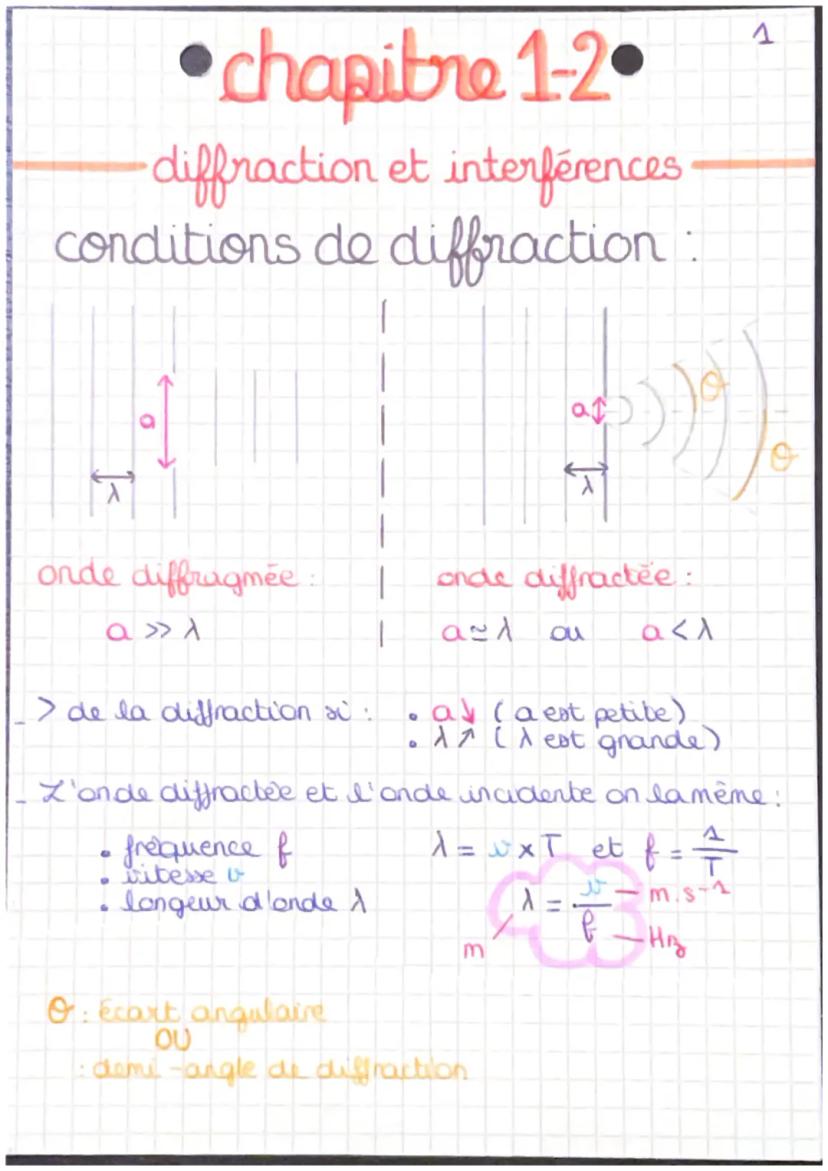 1
chapitre 1-2
diffraction et interférences
conditions de diffraction :
a
λ
a
λ
θ
θ
onde diffragmée :
a >> λ
onde diffractée :
a ≃ λ ou a < λ
_ > de la diffraction si : • a ↘ (a est petite)
• λ ↗ (λ est grande)
_ L'onde diffractée et l'onde incidente on la même :
• fréquence f
• vitesse v
• longeur d'onde λ
λ = v x T et f = 1/T
λ = v/f
m.s-1
m
Hz
θ : écart angulaire
OU
: demi-angle de diffraction